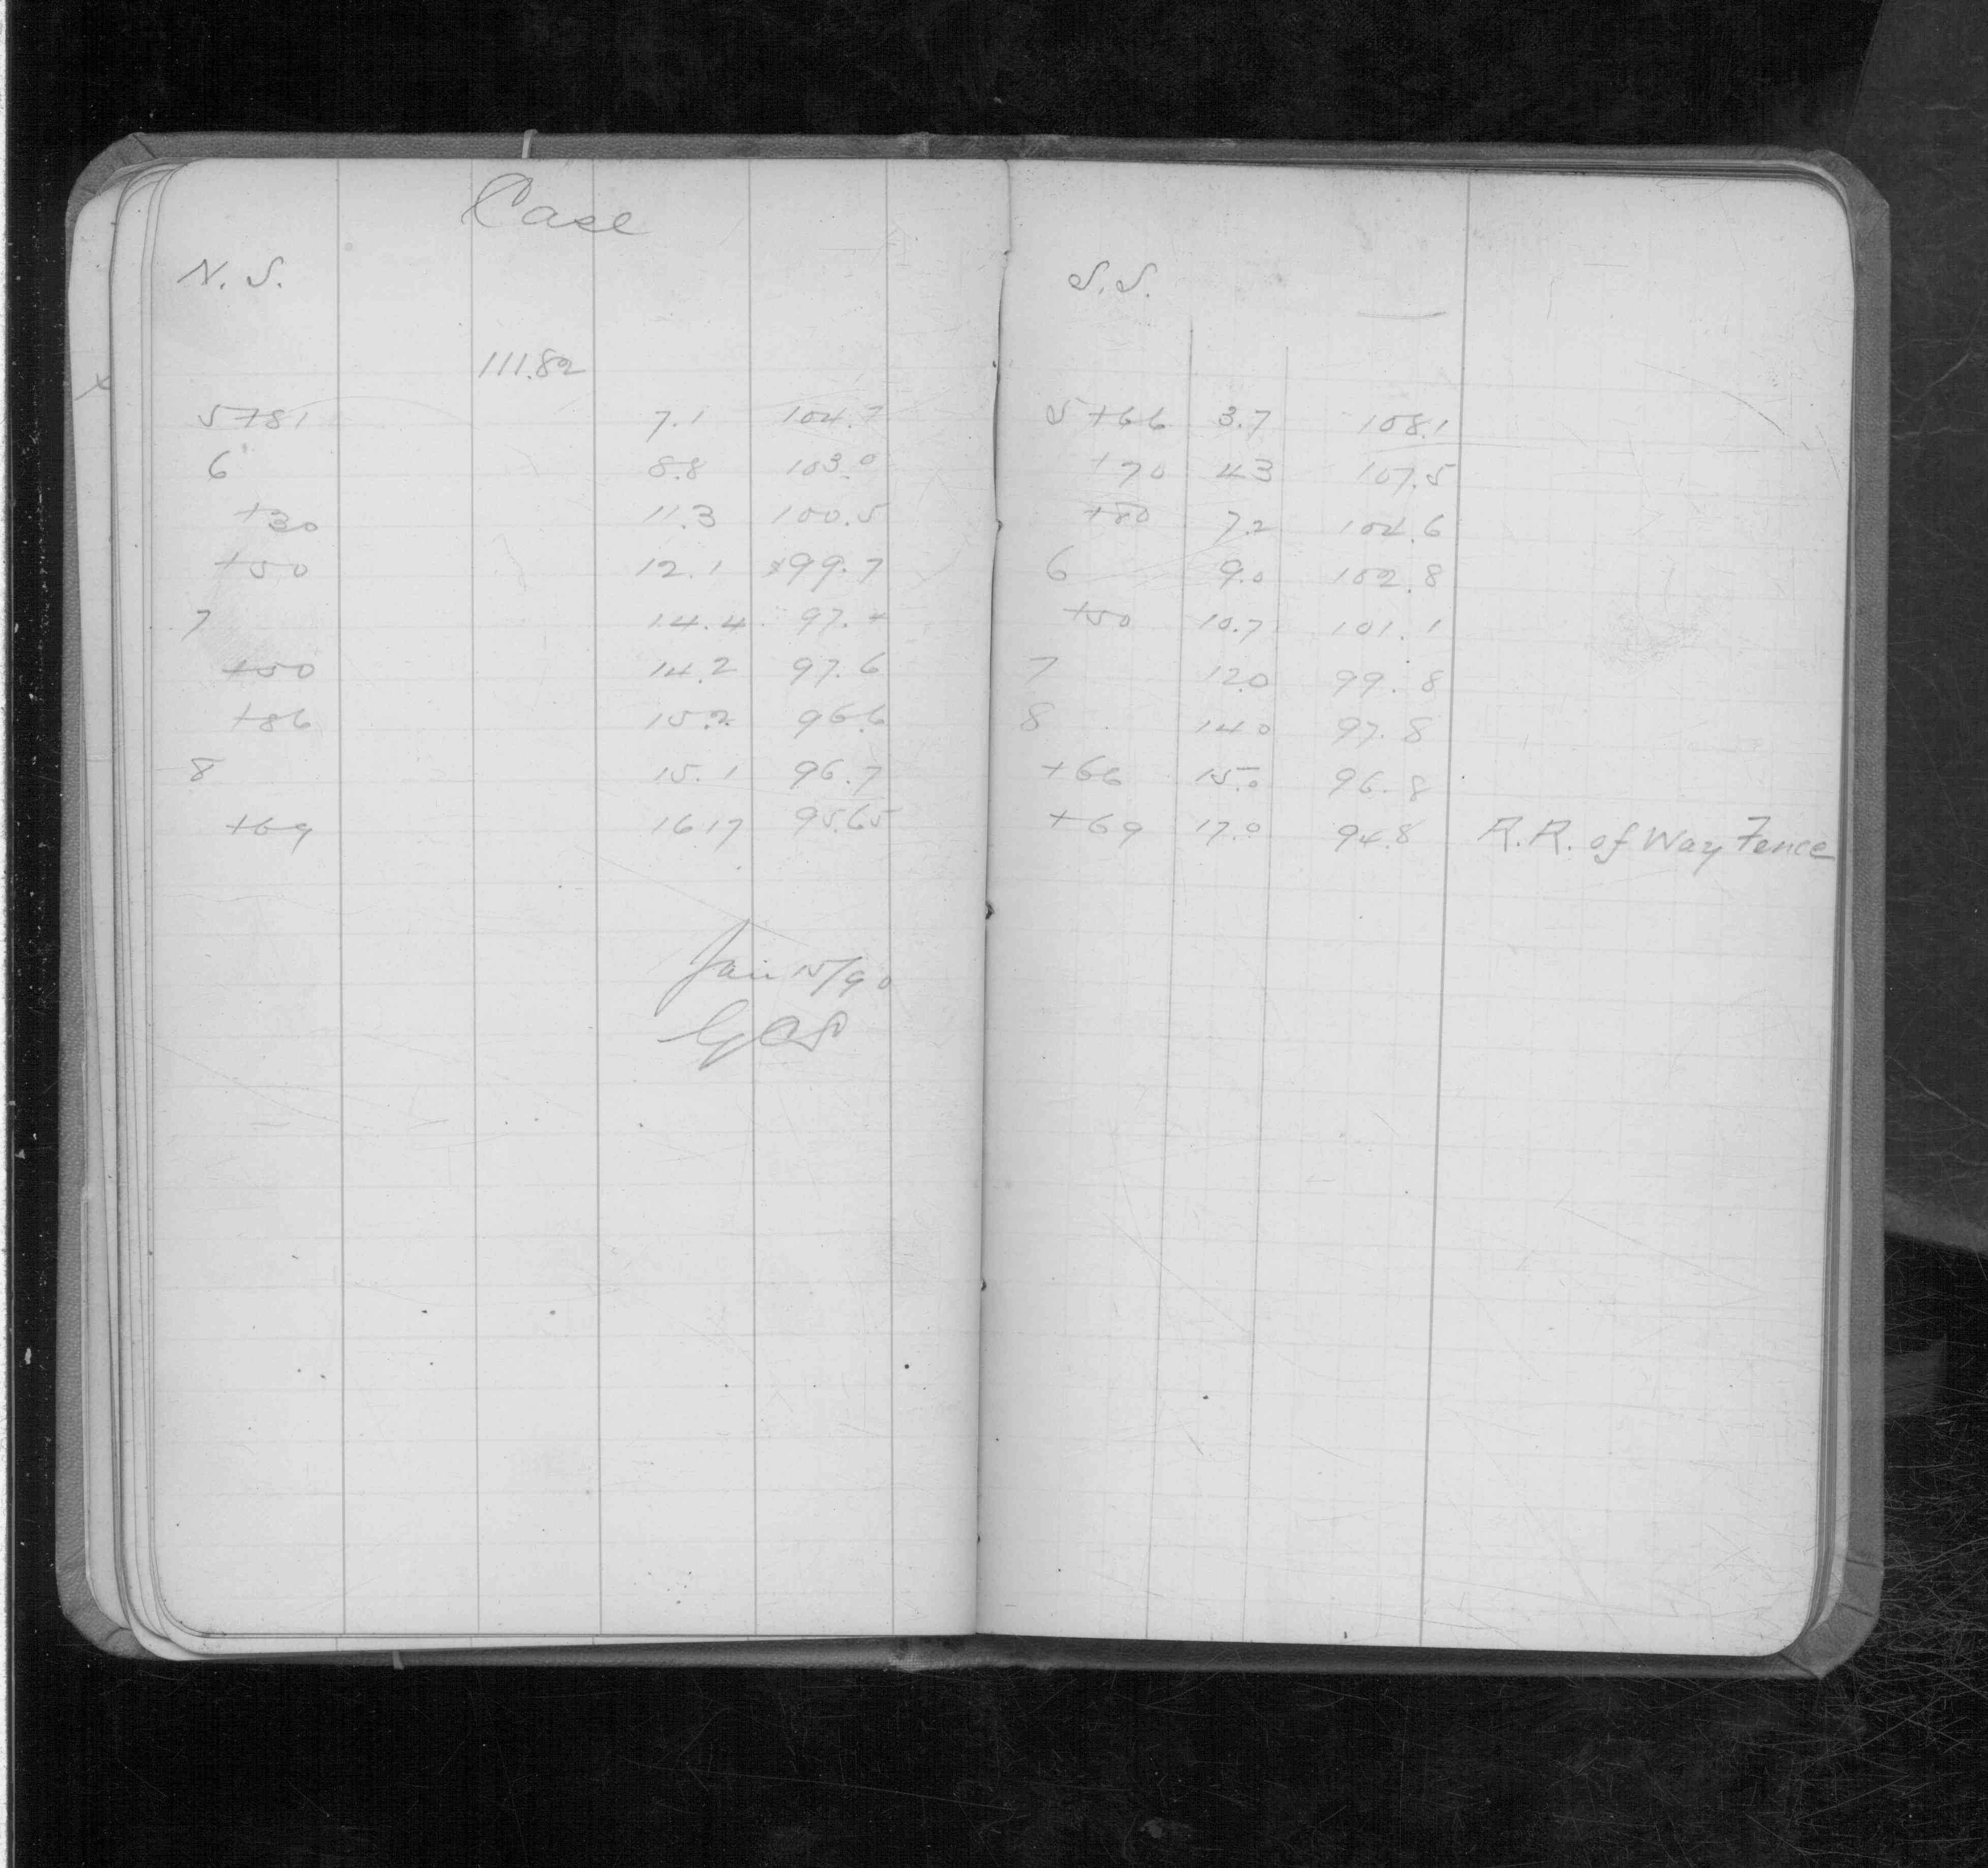 Case
N. S.
111.82
5+81 7.1 104.7
6 8.8 103.0
+30 11.3 100.5
+50 12.1 99.7
7 14.4 97.4
+50 14.2 97.6
+86 15.2 96.6
8 15.1 96.7
+69 16.17 95.65
Jan 15/90
S.S.
5+66 3.7 108.1
+70 4.3 107.5
+80 7.2 104.6
6 9.0 102.8
+50 10.7 101.1
7 12.0 99.8
8 14.0 97.8
+66 15.0 96.8
+69 17.0 94.8 R.R. of Way Fence